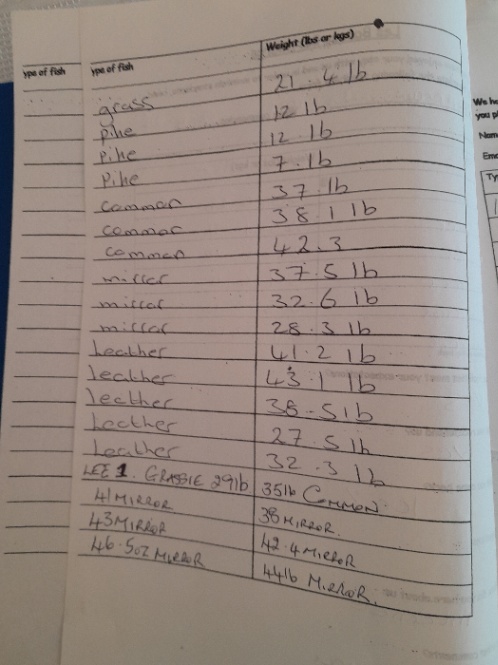 ype of fish
ype of fish Weight (lbs or kgs)
grass 21.4 lb
pike 12 lb
Pike 12.lb
Pike 7.lb
common 37.lb
common 38.1 lb
common 42.3
mirror 37.5 lb
mirror 32.6 lb
mirror 28.3 lb
Leather 41.2 lb
leather 43.1 lb
leather 38.5lb
Leather 27.5 lb
Leather 32.3 lb
LEE 1. GRASSIE 29lb 35lb COMMON
41 MIRROR 38 MIRROR.
43 MIRROR 42.4 MIRROR
46.5oz MIRROR 44lb MIRROR.
We ha
you pl
Nam
Ema
Ty